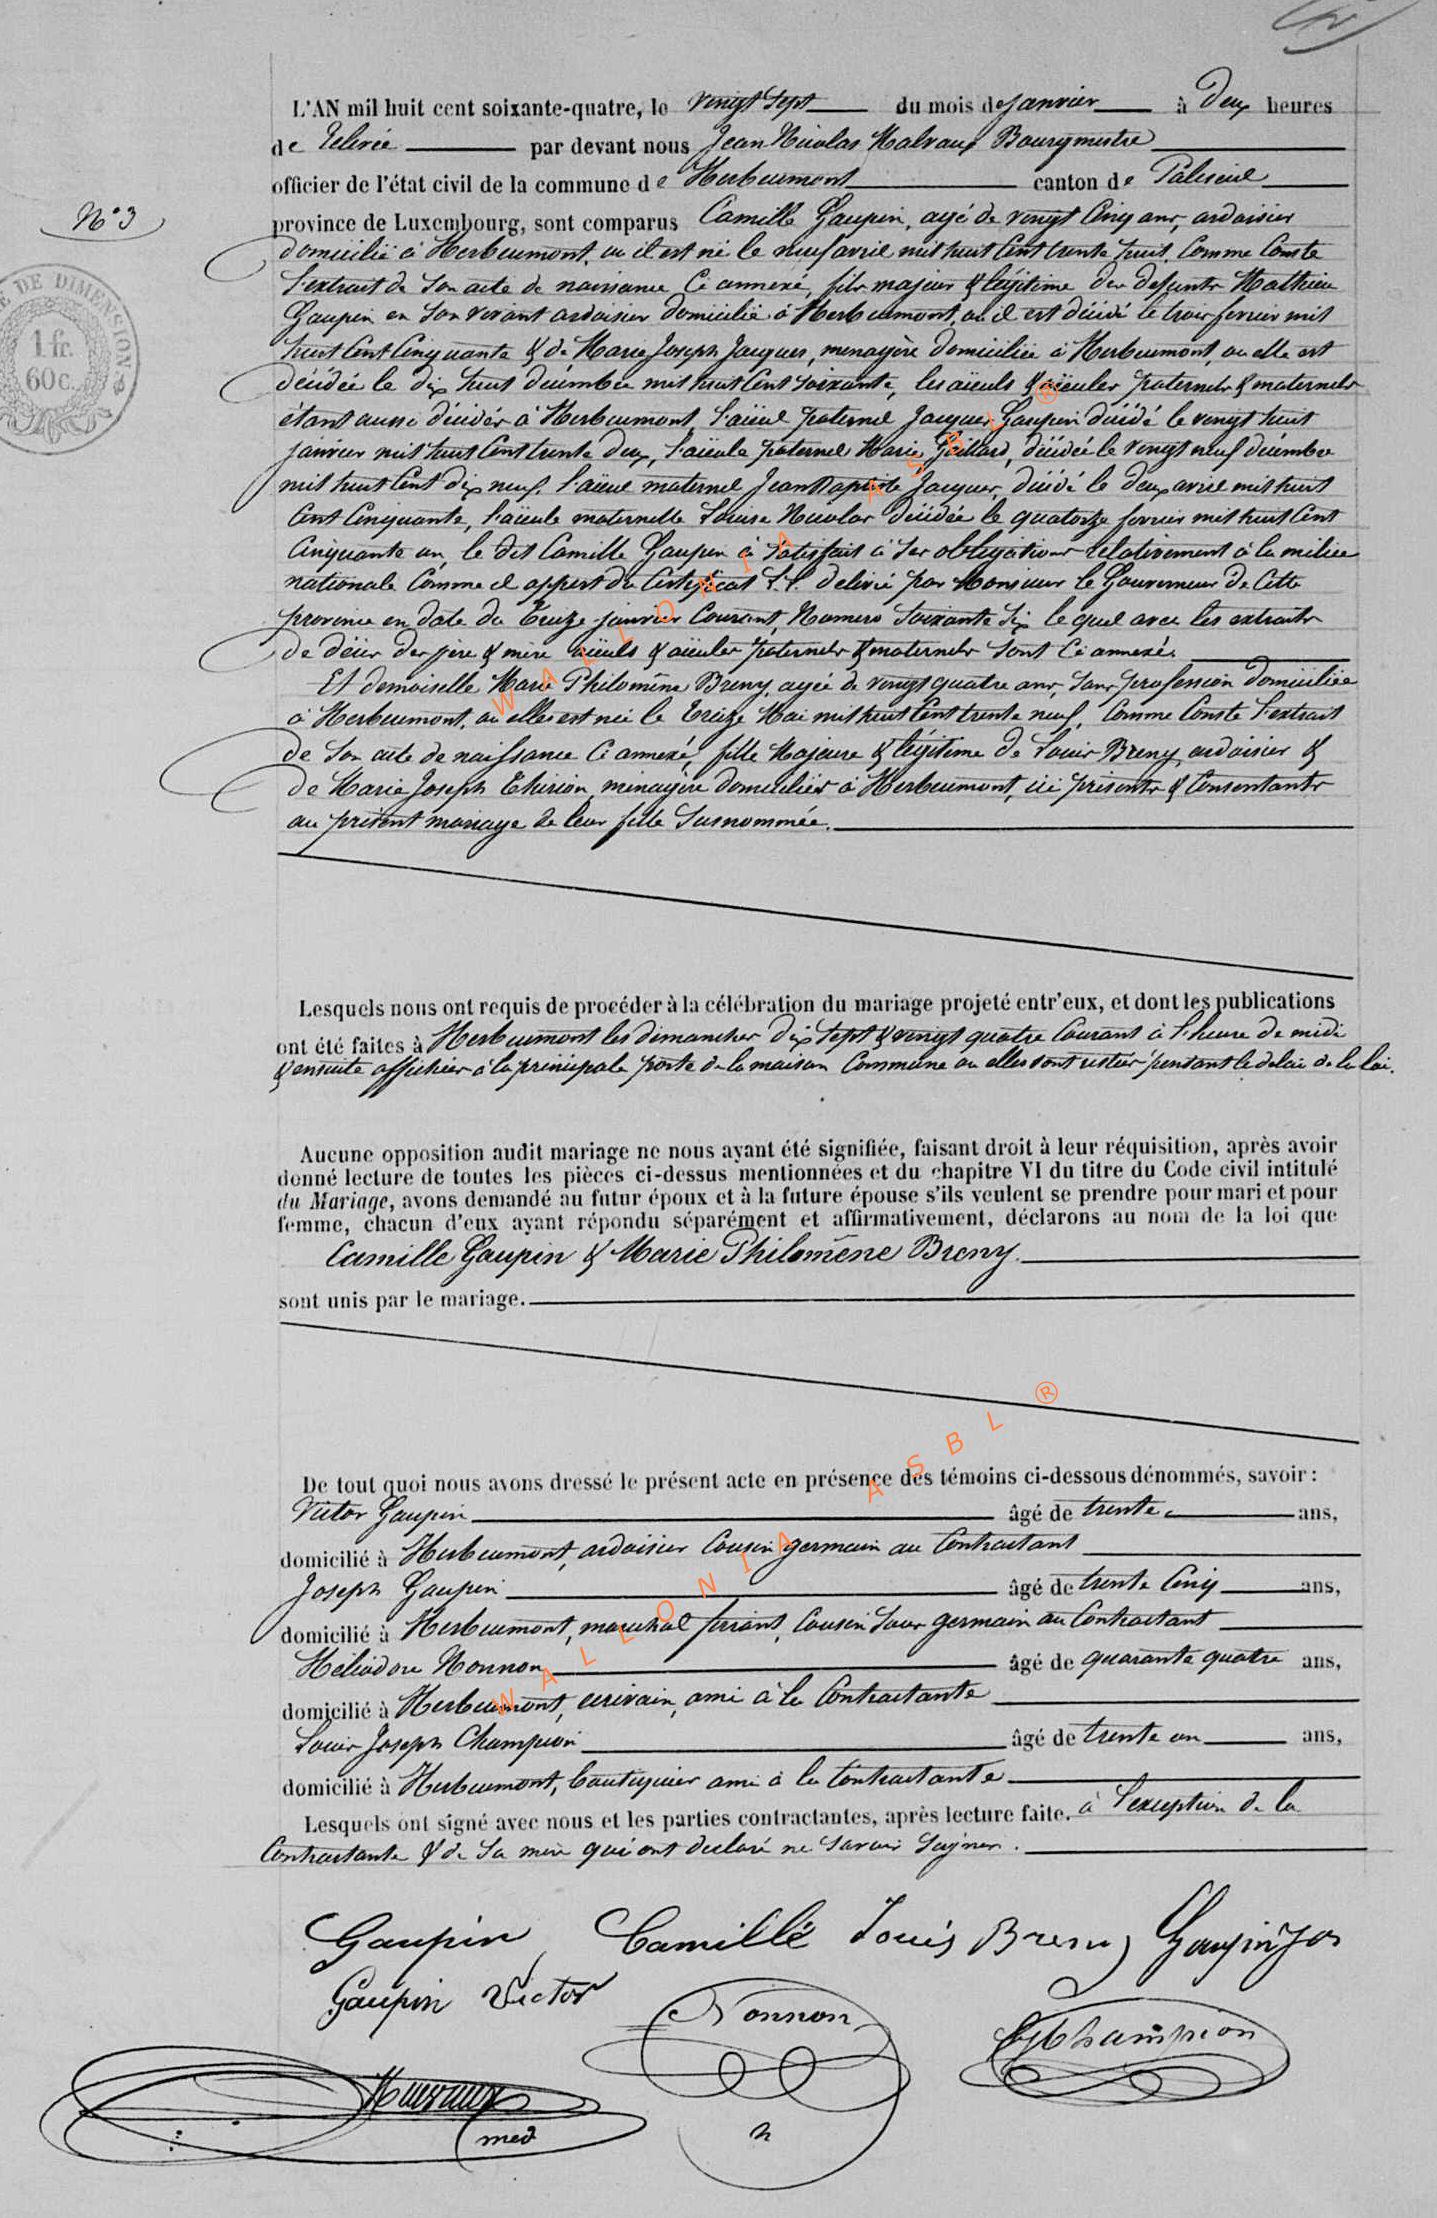 L'AN mil huit cent soixante-quatre, le vingt sept du mois de janvier à deux heures
de relevée par devant nous Jean Nicolas Malvaux Bourgmestre
officier de l'état civil de la commune de Herbeumont canton de Paliseul
N° 3
province de Luxembourg, sont comparus Camille Gaupin, agé de vingt cinq ans, ardoisier
domicilié à Herbeumont, ou il est né le neuf avril mil huit cent trente huit, comme conste
l'extrait de son acte de naissance ci annexé, fils majeur & légitime des defunts Mathieu
Gaupin en son vivant ardoisier domicilié à Herbeumont, ou il est décédé le trois fevrier mil
huit cent cinquante & de Marie Joseph Jacques, menagère domiciliée à Herbeumont, ou elle est
décédée le dix huit décembre mil huit cent soixante, les aïeuls & aïeules paternels & maternels
étant aussi décédés à Herbeumont, l'aïeul paternel Jacques Gaupin décédé le vingt huit
janvier mil huit cent trente deux, l'aïeule paternel Marie Gillard, décédée le vingt neuf décembre
mil huit cent dix neuf, l'aïeul maternel Jean Baptiste Jacques, décédé le deux avril mil huit
cent cinquante, l'aïeule maternelle Louise Nicolas décédée le quatorze fevrier mil huit cent
cinquante un, le dit Camille Gaupin à satisfait à ses obligations relativement à la milice
nationale comme il appert du certificat delivré par Monsieur le Gouverneur de cette
province en date du treize janvier courant, Numero soixante six lequel avec les extraits
de décès des père & mère aïeuls & aïeules paternels & maternels sont ci annexés.
Et demoiselle Marie Philomène Breny, agée de vingt quatre ans, sans profession domiciliée
à Herbeumont, ou elle est née le treize Mai mil huit cent trente neuf, comme conste l'extrait
de son acte de naissance ci annexé, fille Majeure & légitime de Louis Breny, ardoisier &
de Marie Joseph Thirion, ménagère domiciliés à Herbeumont, ici présents & consentants
au présent mariage de leur fille susnommée.
Lesquels nous ont requis de procéder à la célébration du mariage projeté entr'eux, et dont les publications
ont été faites à Herbeumont les dimanches dix sept & vingt quatre courant à l'heure de midi
& ensuite affichées à la principale porte de la maison Commune ou elles sont restées pendant le delai de la loi.
Aucune opposition audit mariage ne nous ayant été signifiée, faisant droit à leur réquisition, après avoir
donné lecture de toutes les pièces ci-dessus mentionnées et du chapitre VI du titre du Code civil intitulé
du Mariage, avons demandé au futur époux et à la future épouse s'ils veulent se prendre pour mari et pour
femme, chacun d'eux ayant répondu séparément et affirmativement, déclarons au nom de la loi que
Camille Gaupin & Marie Philomène Breny.
sont unis par le mariage.
De tout quoi nous avons dressé le présent acte en présence des témoins ci-dessous dénommés, savoir :
Victor Gaupin âgé de trente ans,
domicilié à Herbeumont, ardoisier cousin germain au contractant
Joseph Gaupin âgé de trente cinq ans,
domicilié à Herbeumont, marechal ferrant, cousin sous germain au contractant
Héliodore Nonnon âgé de quarante quatre ans,
domicilié à Herbeumont, écrivain, ami à la contractante
Louis Joseph Champion âgé de trente un ans,
domicilié à Herbeumont, boutiquier ami à la contractante
Lesquels ont signé avec nous et les parties contractantes, après lecture faite. à l'exception de la
contractante & de sa mère qui ont declaré ne savoir signer.
Gaupin Camille Louis Breny Gaupin Jos
Gaupin Victor Nonnon Champion
Malvaux
E DE DIMENSION
1 fr.
60 c.
WALLONIA ASBL ®
WALLONIA ASBL ®